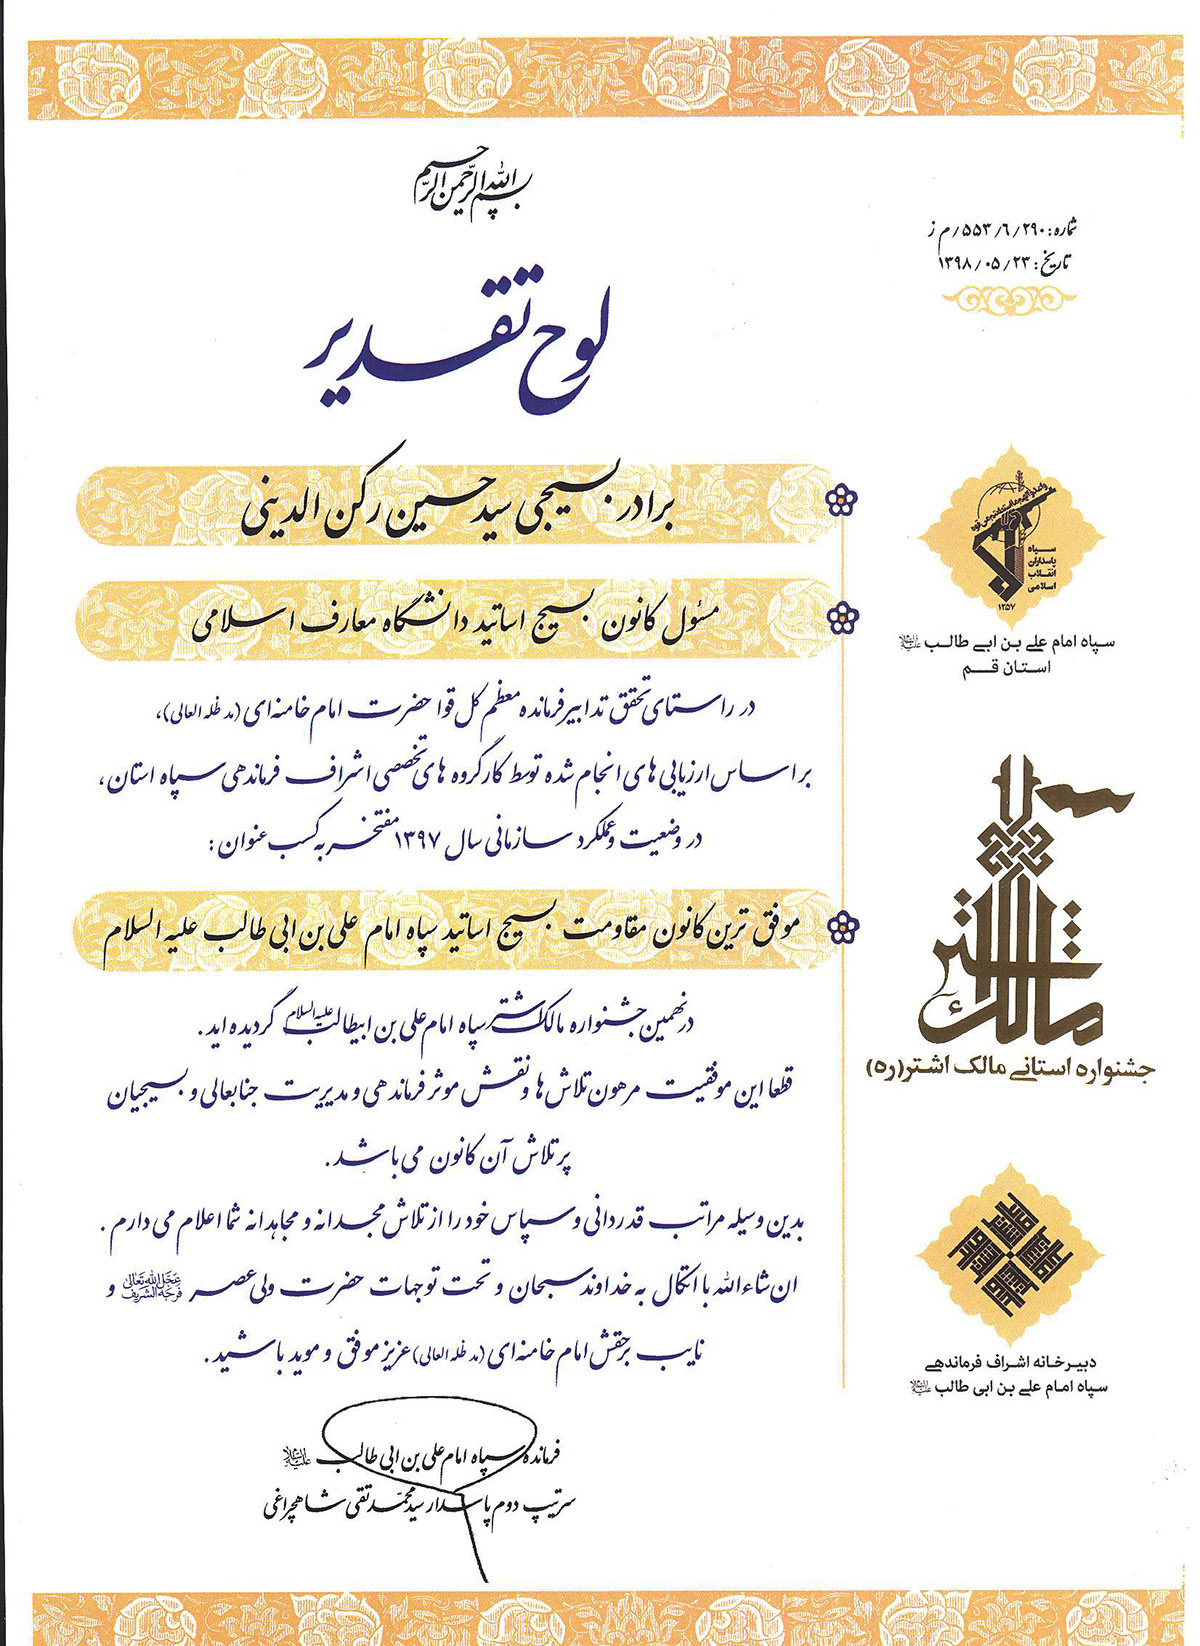 بسم الله الرحمن الرحیم
شماره: ۵۵۳/۶/۲۹۰/م ز
تاریخ: ۱۳۹۸/۰۵/۲۳
لوح تقدیر
برادر بسیجی سید حسین رکن الدینی
مسئول کانون بسیج اساتید دانشگاه معارف اسلامی
در راستای تحقق تدابیر فرمانده معظم کل قوا حضرت امام خامنه ای (مد ظله العالی)،
بر اساس ارزیابی های انجام شده توسط کارگروه های تخصصی اشراف فرماندهی سپاه استان،
در وضعیت و عملکرد سازمانی سال ۱۳۹۷ مفتخر به کسب عنوان:
موفق ترین کانون مقاومت بسیج اساتید سپاه امام علی بن ابی طالب علیه السلام
در نهمین جشنواره مالک اشتر سپاه امام علی بن ابیطالب علیه السلام گردیده اید.
قطعا این موفقیت مرهون تلاش ها و نقش موثر فرماندهی و مدیریت جنابعالی و بسیجیان
پر تلاش آن کانون می باشد.
بدین وسیله مراتب قدردانی و سپاس خود را از تلاش مجدانه و مجاهدانه شما اعلام می دارم.
ان شاءالله با اتکال به خداوند سبحان و تحت توجهات حضرت ولی عصر عجل الله تعالی فرجه الشریف و
نایب برحقش امام خامنه ای (مد ظله العالی) عزیز موفق و موید باشید.
فرمانده سپاه امام علی بن ابی طالب علیه السلام
سرتیپ دوم پاسدار سید محمد تقی شاهچراغی
سپاه
پاسداران
انقلاب
اسلامی
۱۳۵۷
سپاه امام علی بن ابی طالب علیه السلام
استان قم
مالک اشتر
جشنواره استانی مالک اشتر(ره)
دبیرخانه اشراف فرماندهی
سپاه امام علی بن ابی طالب علیه السلام